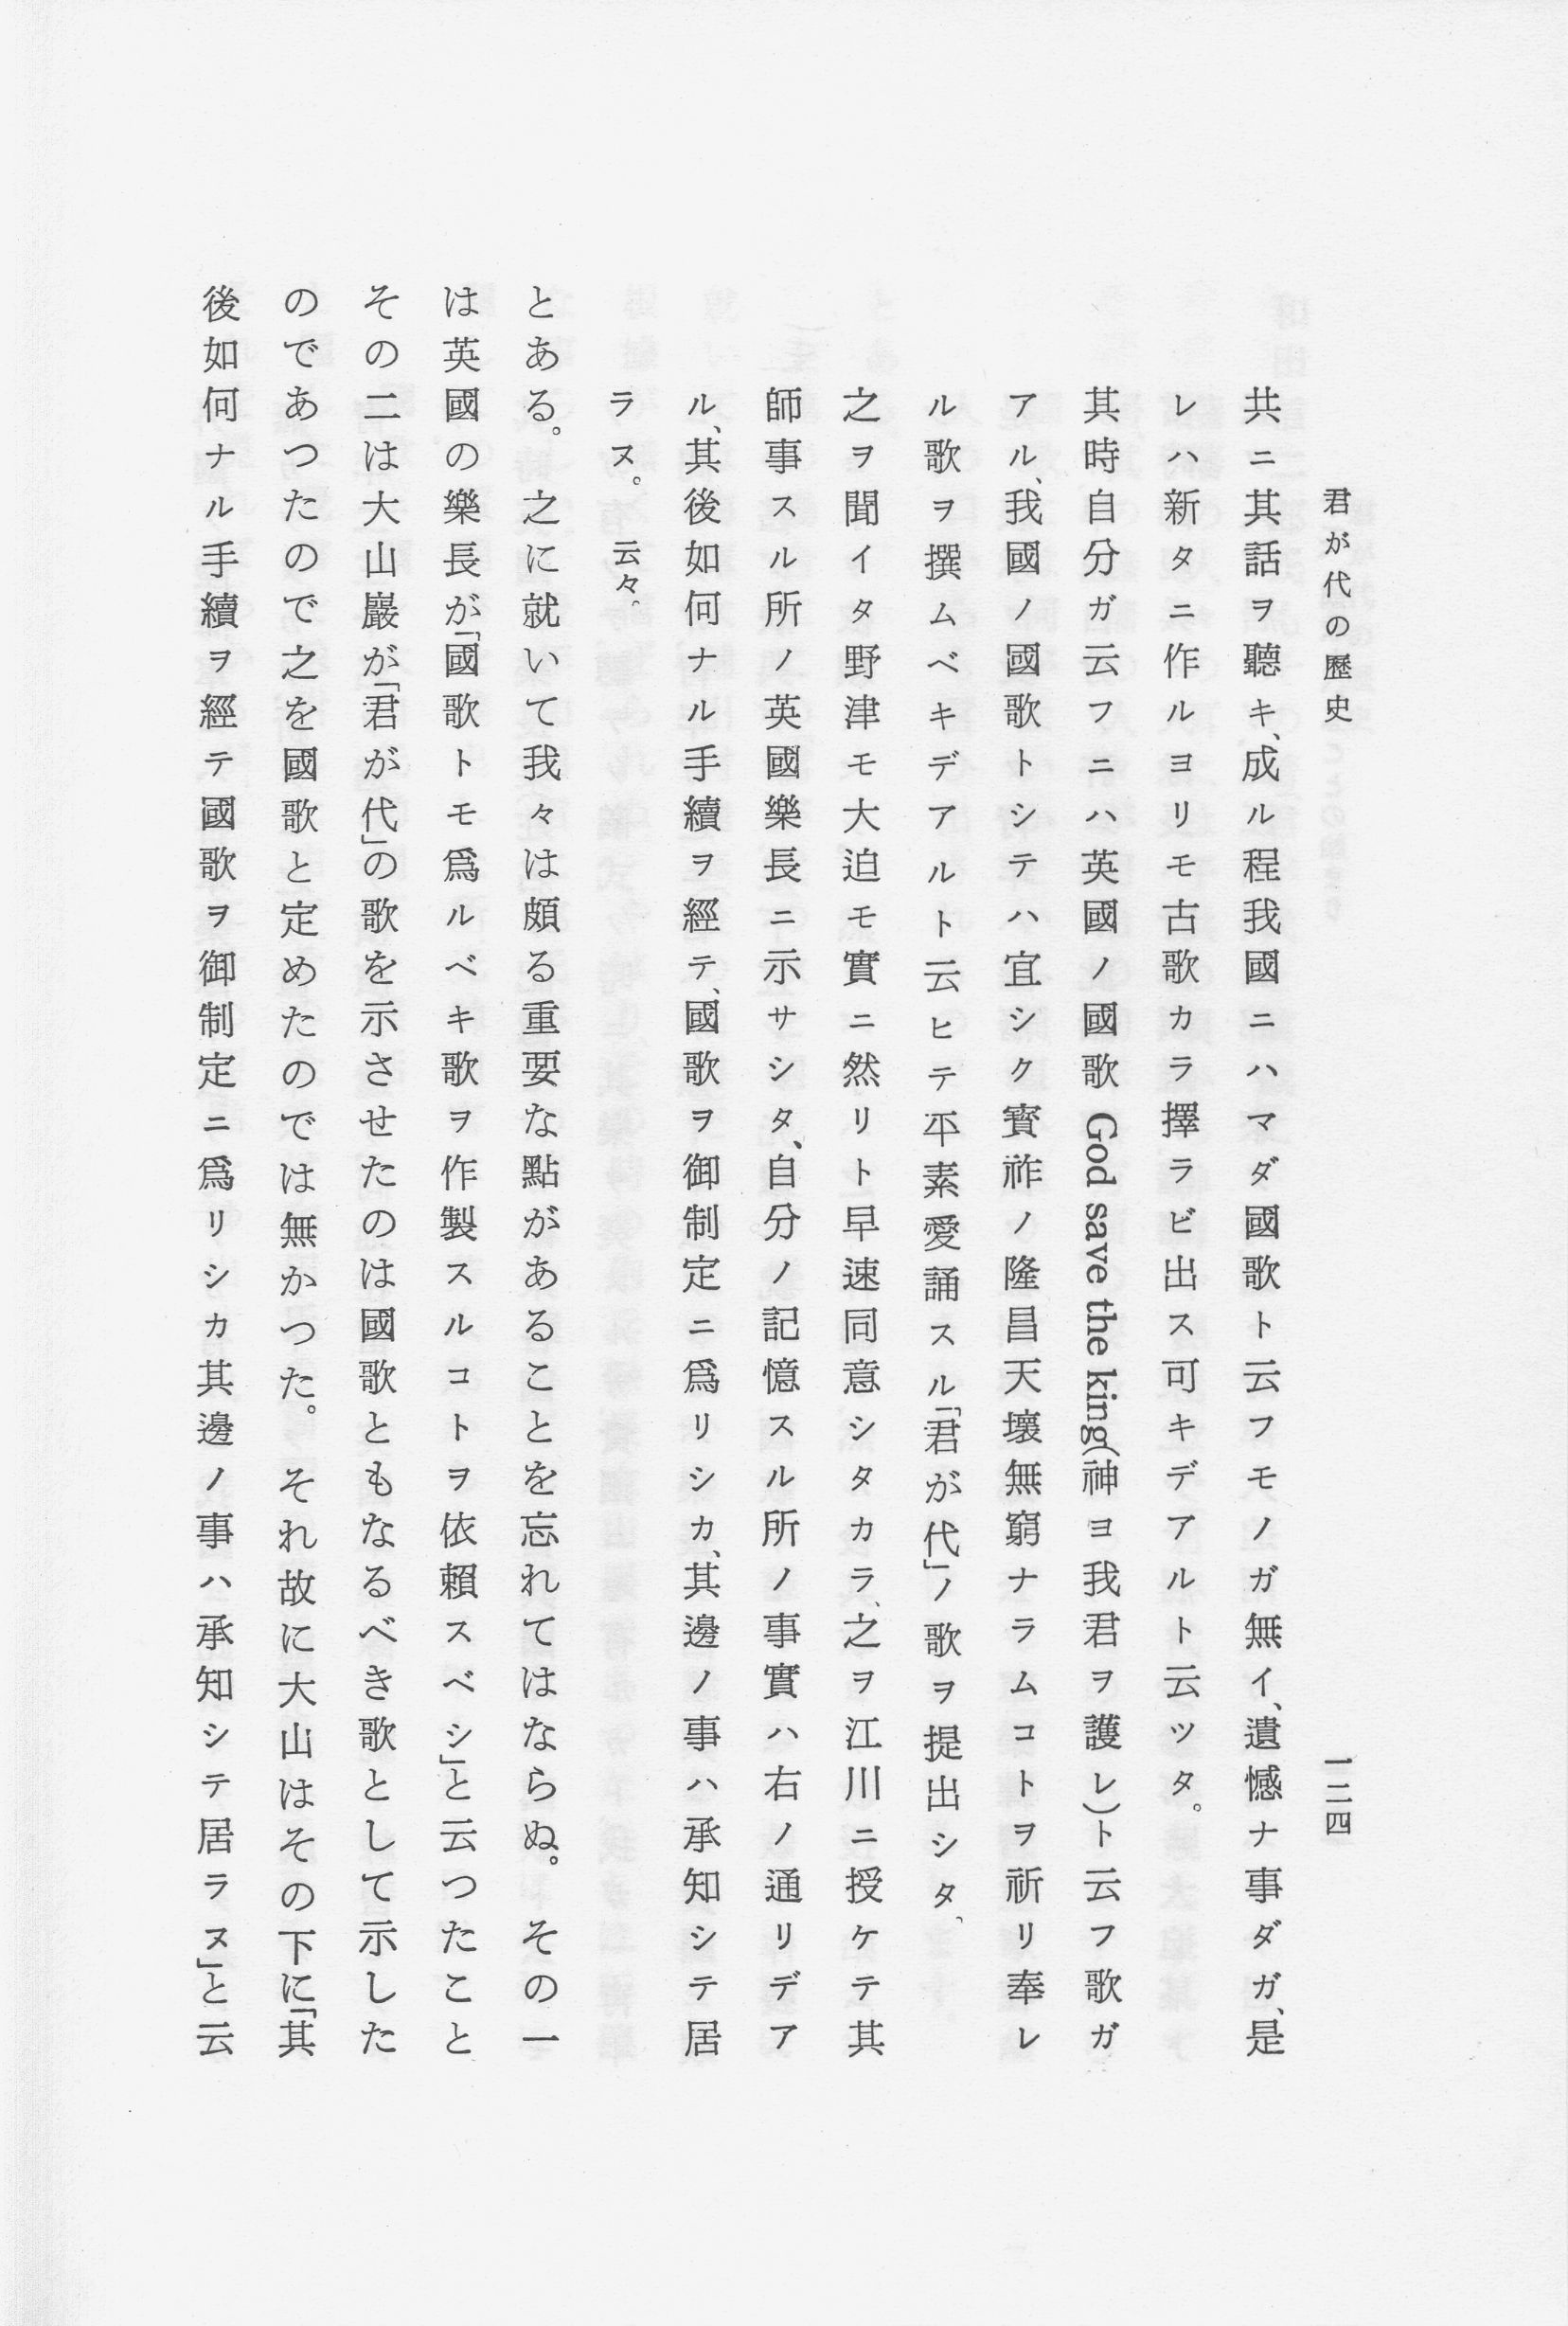 君が代の歴史
一二四
共ニ其話ヲ聽キ、成ル程我國ニハマダ國歌ト云フモノガ無イ、遺憾ナ事ダガ、是
レハ新タニ作ルヨリモ古歌カラ擇ラビ出ス可キデアルト云ツタ。
其時自分ガ云フニハ英國ノ國歌 God save the king(神ヨ我君ヲ護レ)ト云フ歌ガ
アル、我國ノ國歌トシテハ宜シク寶祚ノ隆昌天壤無窮ナラムコトヲ祈リ奉レ
ル歌ヲ撰ムベキデアルト云ヒテ平素愛誦スル「君が代」ノ歌ヲ提出シタ、
之ヲ聞イタ野津モ大迫モ實ニ然リト早速同意シタカラ、之ヲ江川ニ授ケテ其
師事スル所ノ英國樂長ニ示サシタ、自分ノ記憶スル所ノ事實ハ右ノ通リデア
ル、其後如何ナル手續ヲ經テ、國歌ヲ御制定ニ爲リシカ、其邊ノ事ハ承知シテ居
ラヌ。云々。
とある。之に就いて我々は頗る重要な點があることを忘れてはならぬ。その一
は英國の樂長が「國歌トモ爲ルベキ歌ヲ作製スルコトヲ依賴スベシ」と云つたこと
その二は大山巖が「君が代」の歌を示させたのは國歌ともなるべき歌として示した
のであつたので之を國歌と定めたのでは無かつた。それ故に大山はその下に「其
後如何ナル手續ヲ經テ國歌ヲ御制定ニ爲リシカ其邊ノ事ハ承知シテ居ラヌ」と云